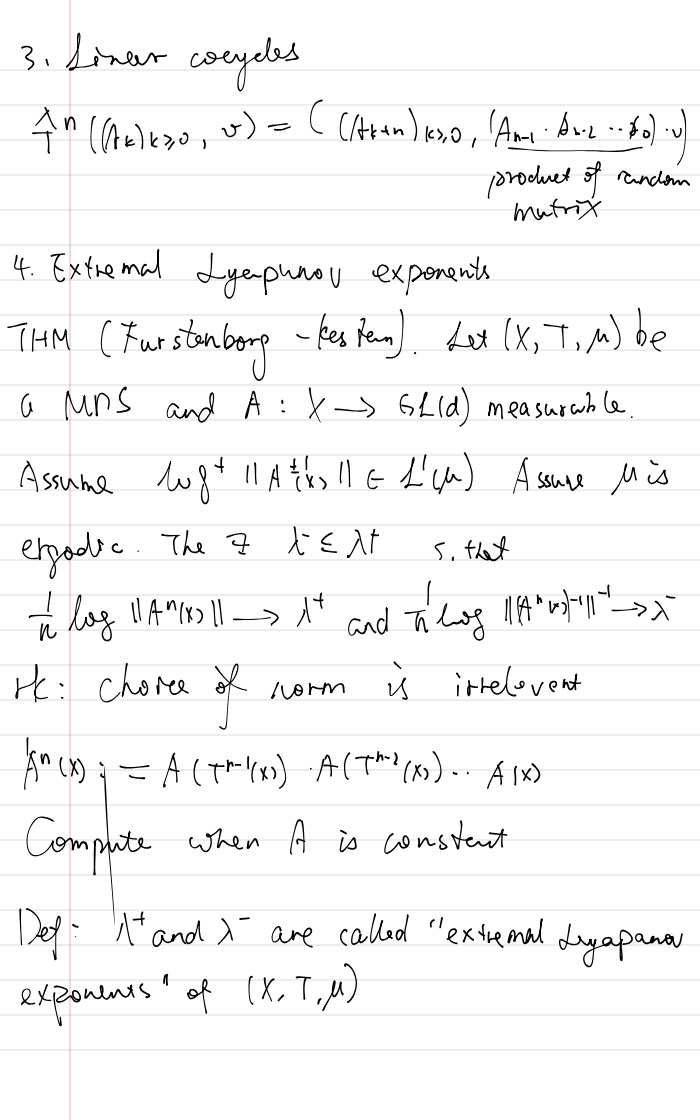 3. Linear cocycles
T̂ⁿ((A_k)_{k≥0}, v) = ((A_{k+n})_{k≥0}, (A_{n-1} · A_{n-2} ·· A_0) · v)
product of random
matrix
4. Extremal Lyapunov exponents
THM (Furstenborg - Kesten). Let (X, T, μ) be
a MDS and A : X → GL(d) measurable.
Assume log⁺ ||A^{±1}(x)|| ∈ L¹(μ) Assume μ is
ergodic. The ∃ λ⁻ ≤ λ⁺ s. that
1/n log ||Aⁿ(x)|| → λ⁺ and 1/n log ||(Aⁿ(x))⁻¹||⁻¹ → λ⁻
rk: choice of norm is irrelevent
Aⁿ(x) := A(T^{n-1}(x)) · A(T^{n-2}(x)) ·· A(x)
Compute when A is constant
Def: λ⁺ and λ⁻ are called "extremal Lyapanov
exponents" of (X, T, μ)